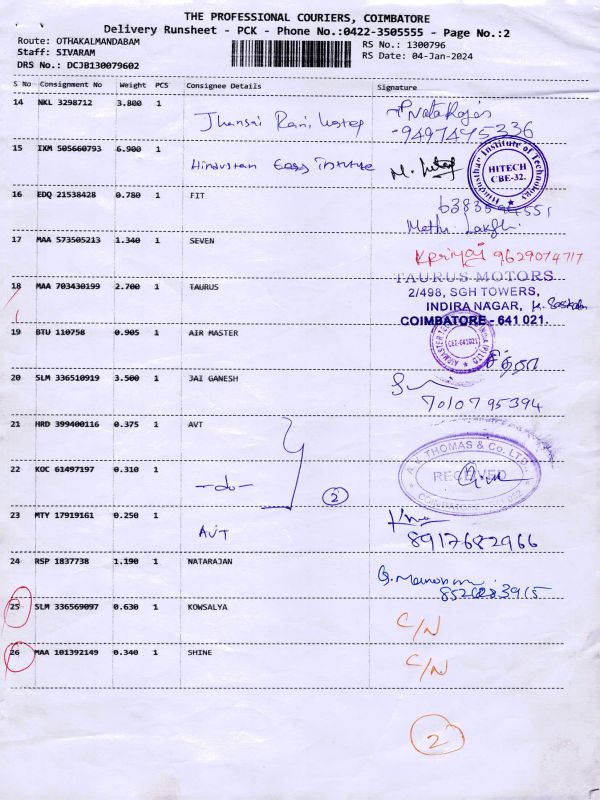 THE PROFESSIONAL COURIERS, COIMBATORE
Delivery Runsheet - PCK - Phone No.:0422-3505555 - Page No.:2
Route: OTHAKALMANDABAM
RS No.: 1300796
Staff: SIVARAM
RS Date: 04-Jan-2024
DRS No.: DCJB130079602
S No Consignment No Weight PCS Consignee Details Signature
14 NKL 3298712 3.800 1 Jhansi Rani
15 IXM 505660793 6.900 1 Hindustan
Hindusthan Institute of Technology
HITECH
CBE-32.
16 EDQ 21538428 0.780 1 FIT
17 MAA 573505213 1.340 1 SEVEN 9629074717
18 MAA 703430199 2.700 1 TAURUS
TAURUS MOTORS
2/498, SGH TOWERS,
INDIRA NAGAR,
COIMBATORE - 641 021.
19 BTU 110758 0.905 1 AIR MASTER
20 SLM 336510919 3.500 1 JAI GANESH
7010795394
21 HRD 399400116 0.375 1 AVT
22 KOC 61497197 0.310 1 -do-
2
THOMAS & Co. LTD.
RECEIVED
23 MTY 17919161 0.250 1 AVT
8917682966
24 RSP 1837738 1.190 1 NATARAJAN
25 SLM 336569097 0.630 1 KOWSALYA C/N
26 MAA 101392149 0.340 1 SHINE C/N
2